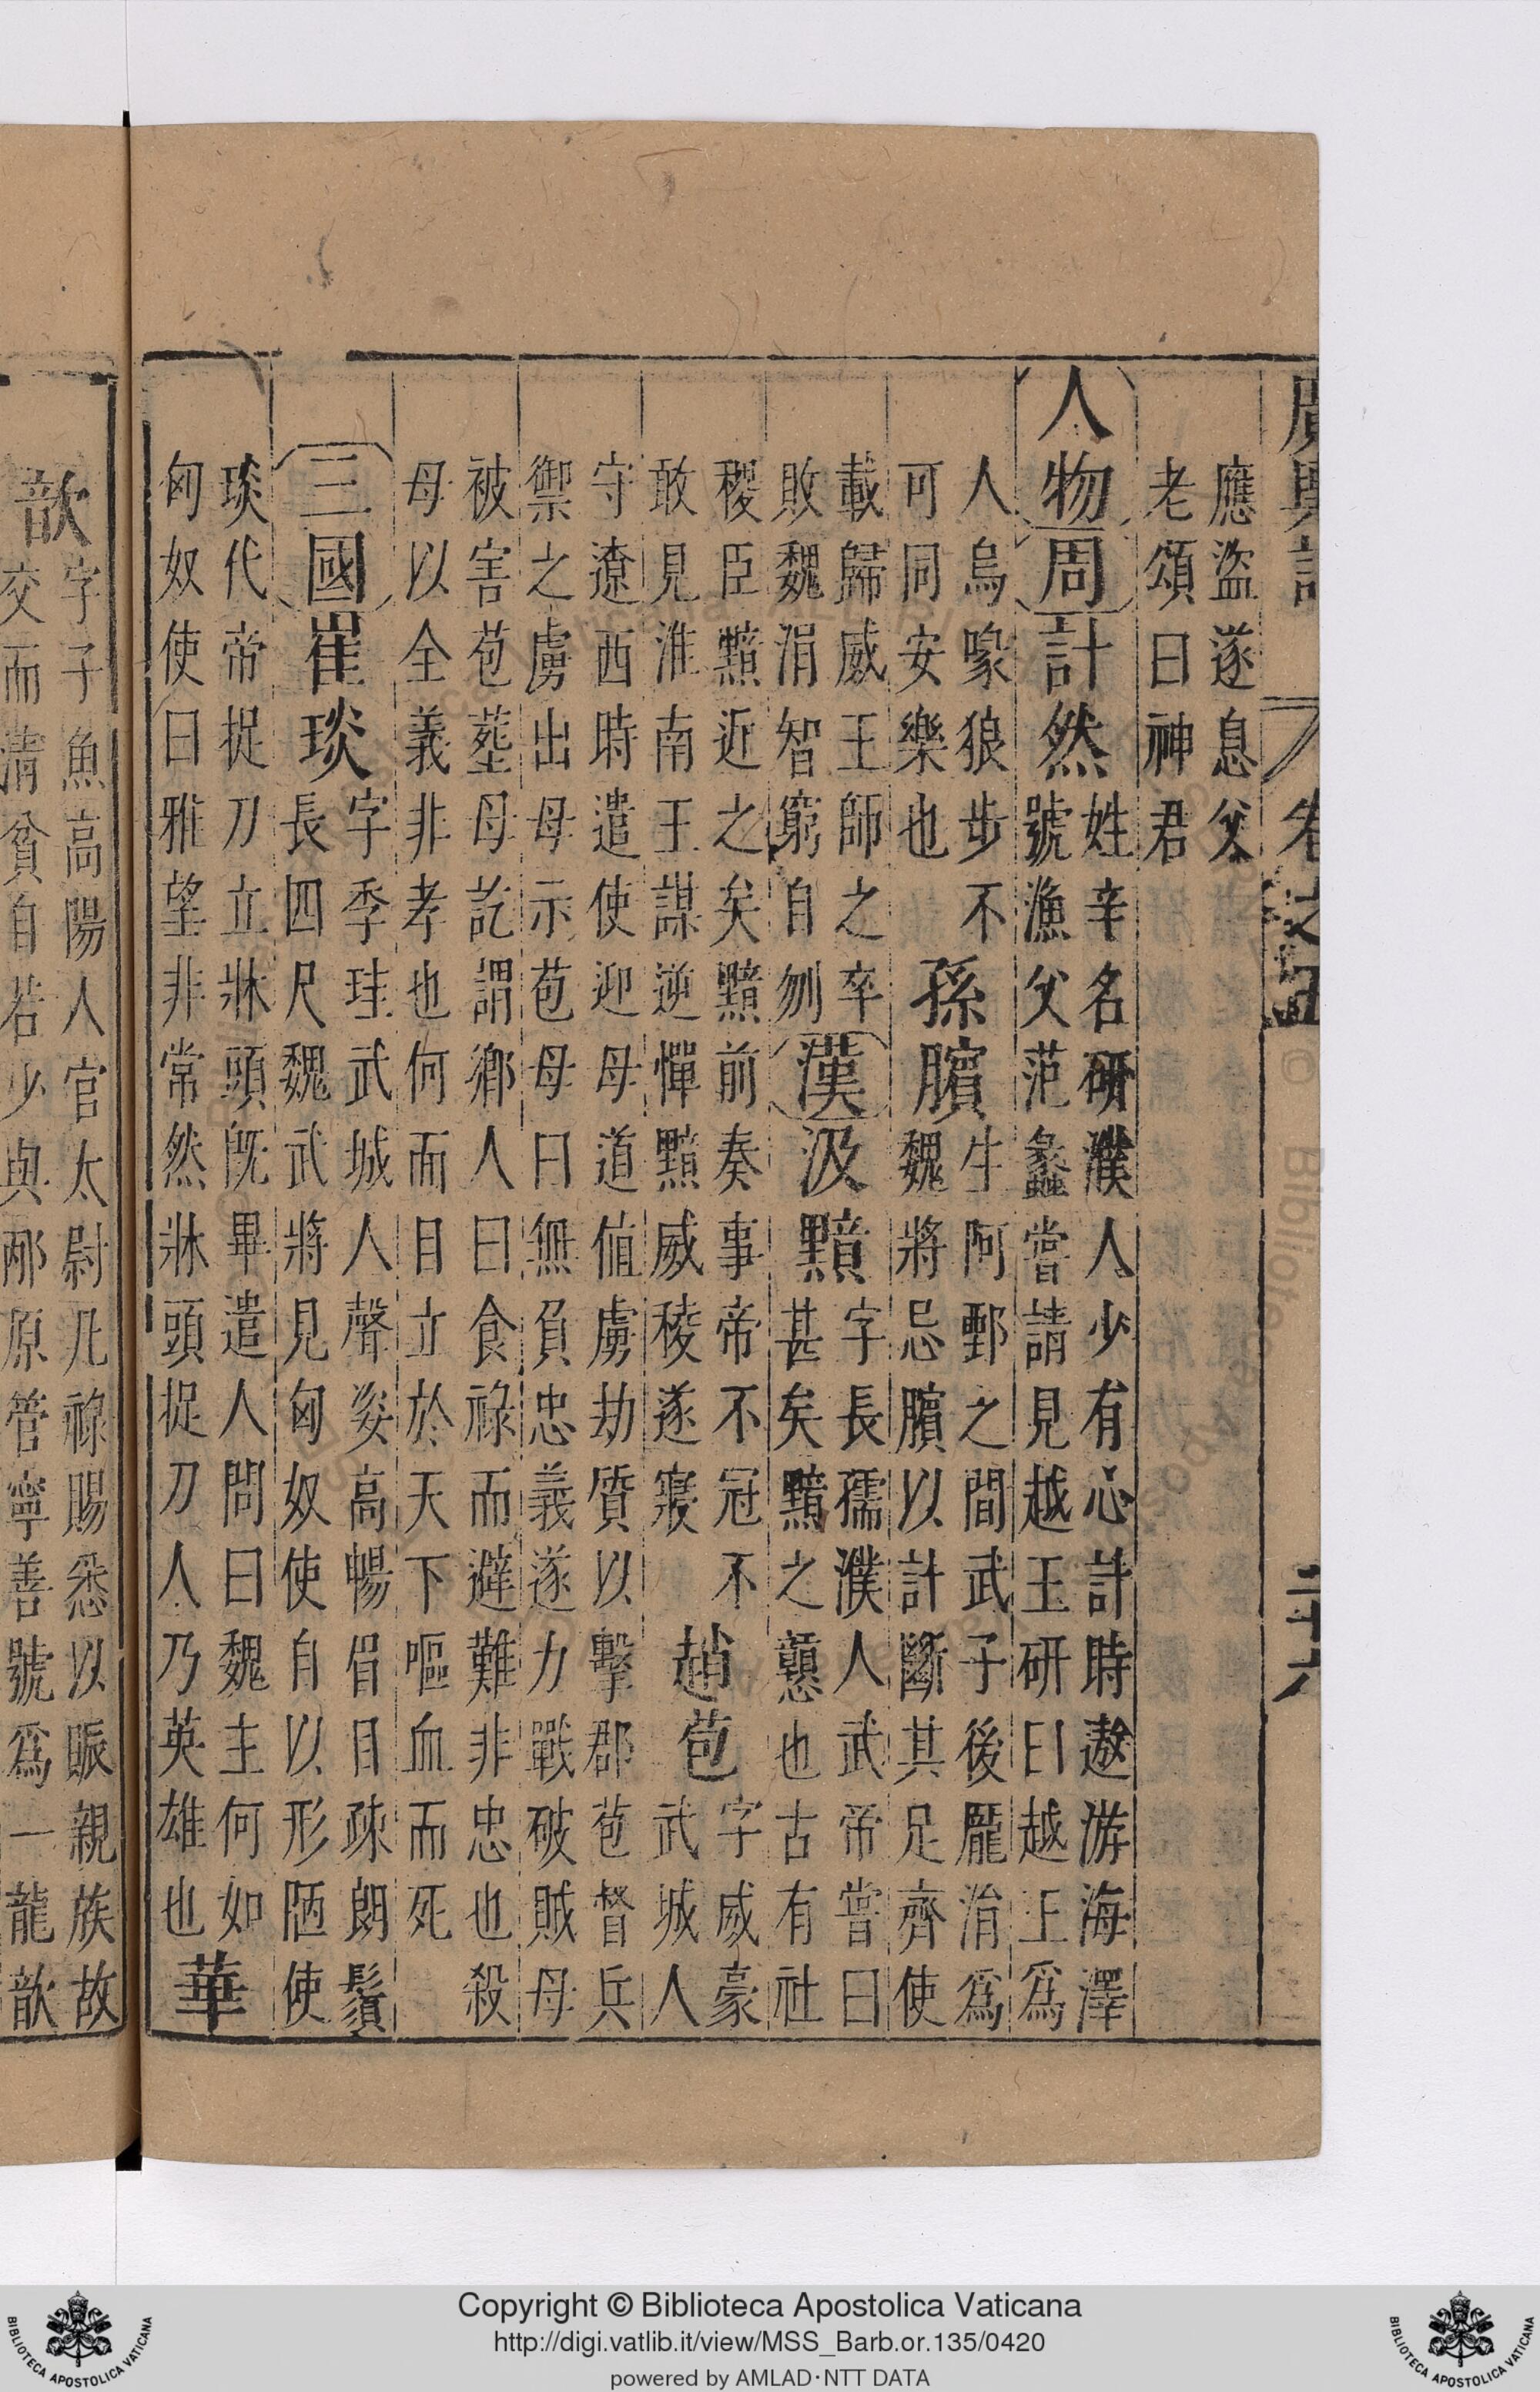 廣輿記 卷之五
應盜遂息父
老頌曰神君
人物 周 計然
姓辛名研濮人少有心計時遨游海澤
號漁父范蠡嘗請見越王研曰越王爲
人烏喙狼步不
可同安樂也
孫臏
生阿鄄之間武子後龐涓爲
魏將忌臏以計斷其足齊使
載歸威王師之卒
敗魏涓智窮自刎
漢 汲黯
字長孺濮人武帝嘗曰
甚矣黯之戇也古有社
稷臣黯近之矣黯前奏事帝不冠不
敢見淮南王謀逆憚黯威稜遂寢
趙苞
字威豪
武城人
守遼西時遣使迎母道値虜劫質以擊郡苞督兵
禦之虜出母示苞母曰無負忠義遂力戰破賊母
被害苞塟母訖謂鄉人曰食祿而避難非忠也殺
母以全義非孝也何而目立於天下嘔血而死
三國 崔琰
字季珪武城人聲姿高暢眉目疎朗鬚
長四尺魏武將見匈奴使自以形陋使
琰代帝捉刀立牀頭旣畢遣人問曰魏主何如
匈奴使曰雅望非常然牀頭捉刀人乃英雄也
華
歆
字子魚高陽人官太尉凡祿賜悉以賑親族故
交而清貧自若少與邴原管寧善號爲一龍歆
Copyright © Biblioteca Apostolica Vaticana
http://digi.vatlib.it/view/MSS_Barb.or.135/0420
powered by AMLAD·NTT DATA
BIBLIOTECA APOSTOLICA VATICANA
BIBLIOTECA APOSTOLICA VATICANA